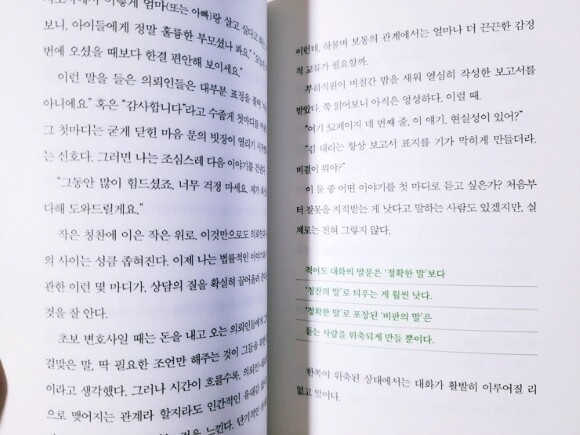 보니, 아이들에게 정말 훌륭한 부모셨나 봐요."
번에 오셨을 때보다 한결 편안해 보이세요."
이런 말을 들은 의뢰인들은 대부분 표정을
아니에요" 혹은 "감사합니다"라고 수줍게 첫마디를
그 첫마디는 굳게 닫힌 마음 문의 빗장이 열리기
는 신호다. 그러면 나는 조심스레 다음 이야기를
"그동안 많이 힘드셨죠. 너무 걱정 마세요. 제가
다해 도와드릴게요."
작은 칭찬에 이은 작은 위로. 이것만으로도
의 사이는 성큼 좁혀진다. 이제 나는 법률적인
관한 이런 몇 마디가, 상담의 질을 확실히 끌어올려
것을 잘 안다.
초보 변호사일 때는 돈을 내고 오는 의뢰인들에게
걸맞은 말, 딱 필요한 조언만 해주는 것이 그들을
이라고 생각했다. 그러나 시간이 흐를수록,
으로 맺어지는 관계라 할지라도 인간적인 유대감
것을 느낀다. 단기적인
이런데, 하물며 보통의 관계에서는 얼마나 더 끈끈한 감정
적 교류가 필요할까.
부하직원이 며칠간 밤을 새워 열심히 작성한 보고서를
받았다. 쭉 읽어보니 아직은 엉성하다. 이럴 때.
"여기 32페이지 네 번째 줄, 이 얘기, 현실성이 있어?"
"김 대리는 항상 보고서 표지를 기가 막히게 만들더라.
비결이 뭐야?"
이 둘 중 어떤 이야기를 첫 마디로 듣고 싶은가? 처음부
터 잘못을 지적받는 게 낫다고 말하는 사람도 있겠지만, 실
제로는 전혀 그렇지 않다.
적어도 대화의 말문은 '정확한 말'보다
'칭찬의 말'로 틔우는 게 훨씬 낫다.
'정확한 말'로 포장된 '비판의 말'은
듣는 사람을 위축되게 만들 뿐이다.
한쪽이 위축된 상태에서는 대화가 활발히 이루어질 리
없고 말이다.